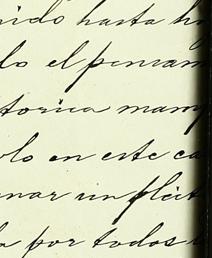 nido hasta h
lo el pensam
torica mam
lo en este ca
nar un pleit
por todos